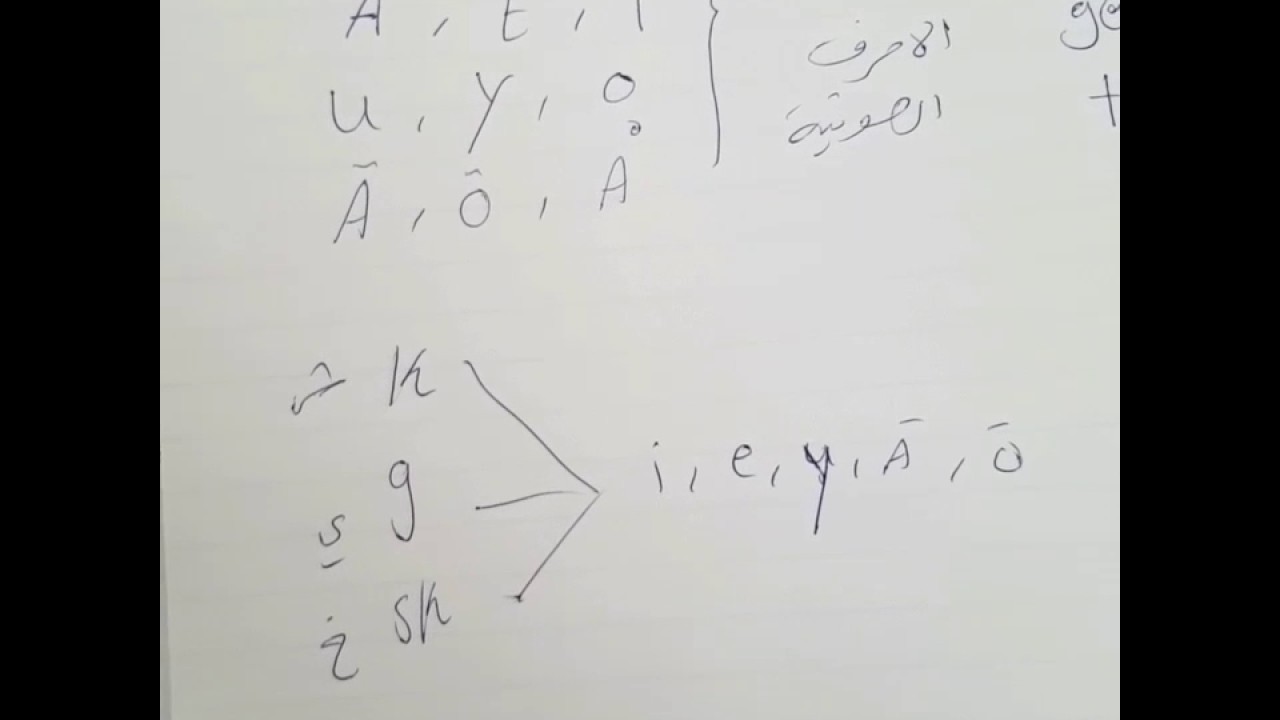 A, E, I
u, y, o
Ã, Õ, Å
الاحرف
الصوتية
ge
t
k
ي g
خ sk
i, e, y, Ā, ō